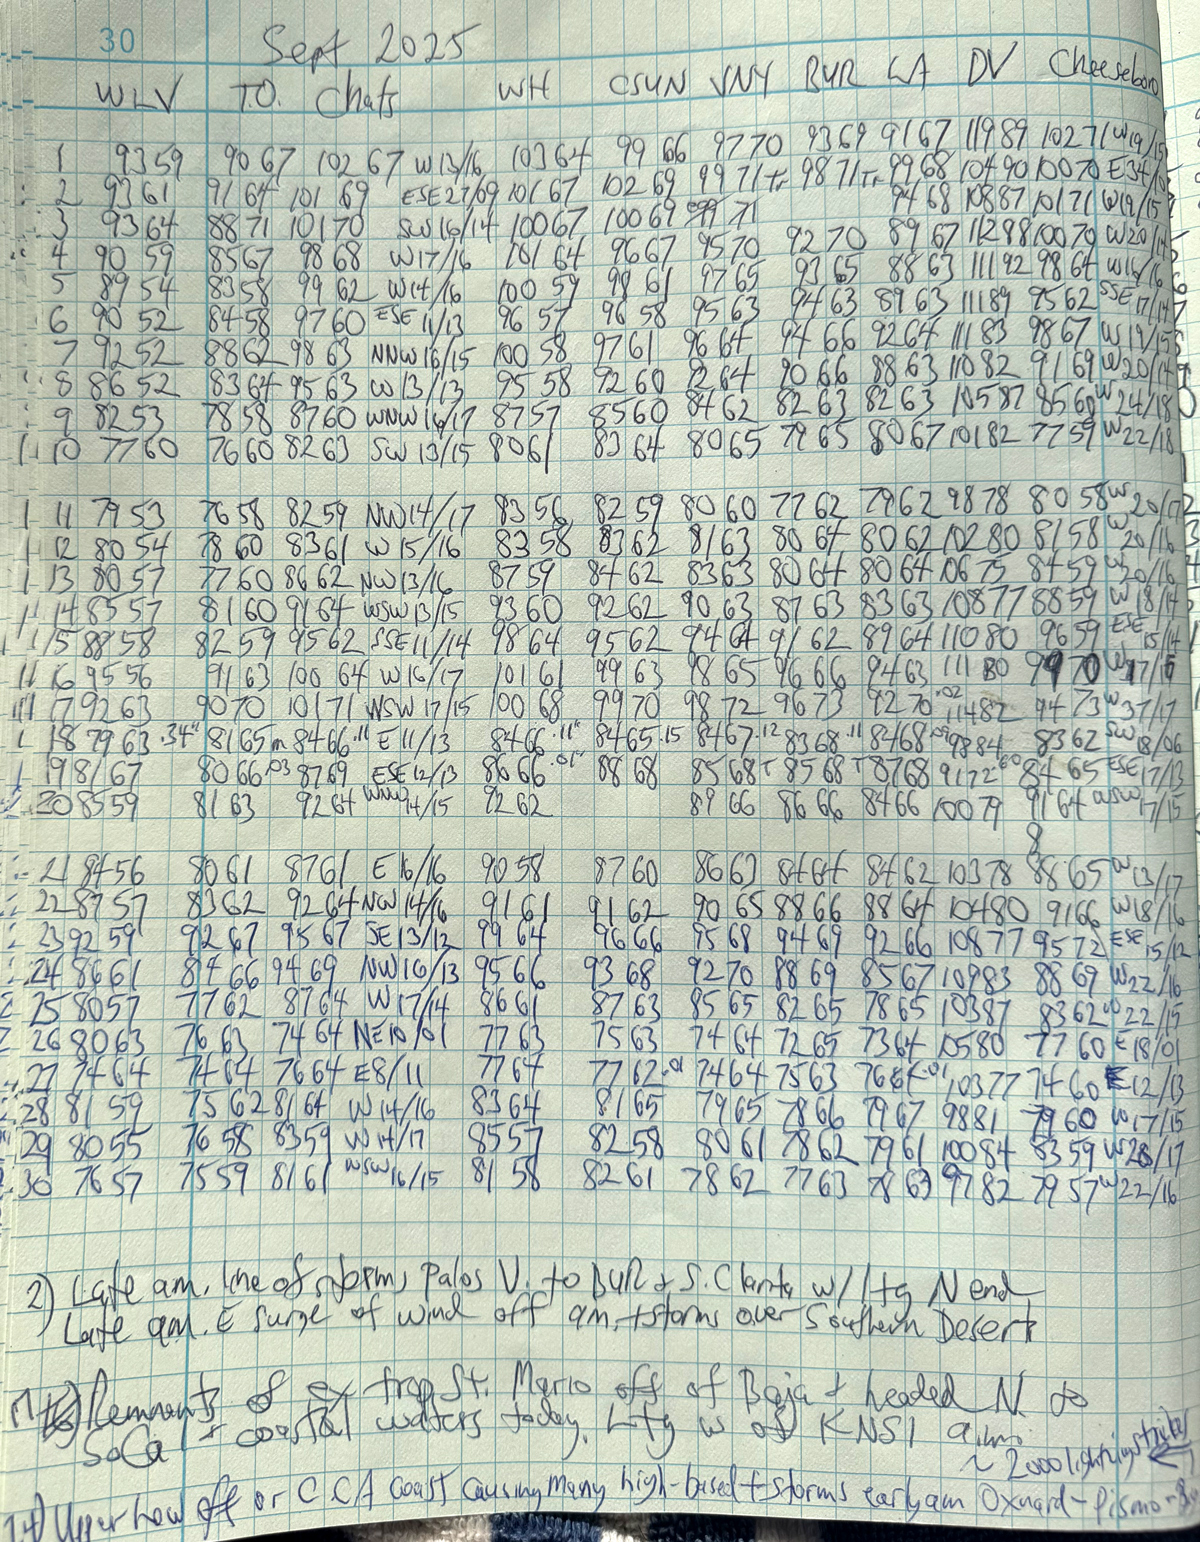 30
Sept 2025
WLV T.O. Chats WH CSUN VNY BUR LA DV Cheeseboro
1 93 59 90 67 102 67 W13/16 103 64 99 66 97 70 93 69 91 67 119 89 102 71 W19/15
2 93 61 91 64 101 69 ESE 27/09 101 67 102 69 99 71 Tr 98 71 Tr 99 68 104 90 100 70 E34/
3 93 64 88 71 101 70 SW 16/14 100 67 100 69 71 94 68 108 87 101 71 W19/15
4 90 59 85 67 98 68 W17/16 101 64 96 67 95 70 92 70 89 67 112 98 100 70 W20/
5 89 54 83 58 99 62 W14/16 100 59 98 61 97 65 93 65 88 63 111 92 98 64 W16/16
6 90 52 84 58 97 60 ESE 11/13 96 57 96 58 95 63 94 63 89 63 111 89 95 62 SSE 17/14
7 92 52 88 62 98 63 NNW 16/15 100 58 97 61 96 64 94 66 92 64 111 83 98 67 W19/15
8 86 52 83 64 95 63 W13/13 95 58 92 60 92 64 90 66 88 63 110 82 91 69 W20/14
9 82 53 78 58 87 60 WNW 16/17 87 57 85 60 84 62 82 63 82 63 105 87 85 60 W24/18
10 77 60 76 60 82 63 SW 13/15 80 61 83 64 80 65 79 65 80 67 101 82 77 59 W22/18
11 79 53 76 58 82 59 NW14/17 83 56 82 59 80 60 77 62 79 62 98 78 80 58 W20/17
12 80 54 78 60 83 61 W 15/16 83 58 83 62 81 63 80 64 80 62 102 80 81 58 W20/16
13 80 57 77 60 86 62 NW 13/16 87 59 84 62 83 63 80 64 80 64 106 75 84 59 W20/16
14 85 57 81 60 91 64 WSW 13/15 93 60 92 62 90 63 87 63 83 63 108 77 88 59 W18/14
15 88 58 82 59 95 62 SSE 11/14 98 64 95 62 94 64 91 62 89 64 110 80 96 59 ESE 15/14
16 95 56 91 63 100 64 W16/17 101 61 99 63 98 65 96 66 94 63 111 80 99 70 W17/15
17 92 63 90 70 101 71 WSW 17/15 100 68 99 70 98 72 96 73 92 70 .02 114 82 94 73 W37/17
18 79 63 .34" 81 65 m 84 66 .11 E11/13 84 66 .11" 84 65 .15 84 67 .12 83 68 .11 84 68 .09 98 84 83 62 SW 18/06
19 81 67 80 66 .03 87 69 ESE 12/13 86 66 .01" 88 68 85 68 T 85 68 T 87 68 91 72 .60 84 65 ESE 17/13
20 85 59 81 63 92 64 WNW 14/15 92 62 89 66 86 66 84 66 100 79 91 64 WSW 17/15
8
21 84 56 80 61 87 61 E 16/16 90 58 87 60 86 63 84 64 84 62 103 78 88 65 W13/17
22 87 57 83 62 92 64 NW 14/16 91 61 91 62 90 65 88 66 88 64 104 80 91 66 W18/16
23 92 59 92 67 95 67 SE 13/12 99 64 96 66 95 68 94 69 92 66 108 77 95 72 ESE 15/12
24 86 61 84 66 94 69 NW 16/13 95 66 93 68 92 70 88 69 85 67 109 83 88 69 W22/16
25 80 57 77 62 87 64 W17/14 86 61 87 63 85 65 82 65 78 65 103 87 83 62 W22/15
26 80 63 76 63 74 64 NE10/01 77 63 75 63 74 64 72 65 73 64 105 80 77 60 E18/01
27 74 64 74 64 76 64 E8/11 77 64 77 62 .01 74 64 75 63 76 64 .01 103 77 74 60 E12/13
28 81 59 75 62 81 64 W14/16 83 64 81 65 79 65 78 66 79 67 98 81 79 60 W17/15
29 80 55 76 58 83 59 W14/17 85 57 82 58 80 61 78 62 79 61 100 84 83 59 W28/17
30 76 57 75 59 81 61 WSW 16/15 81 58 82 61 78 62 77 63 78 63 97 82 79 57 W22/16
2) Late am. line of storms Palos V. to BUR + S. Clarita w/ ltg N end
Late am. E surge of wind off am. tstorms over Southern Desert
17 Remnants of ex trop St. Mario off of Baja + headed N. to
SoCal + coastal waters today. Ltg W of KNSI a.m.
~ 2000 lightning strikes
Upper Low off or C CA coast causing many high-based tstorms early am Oxnard - Pismo -